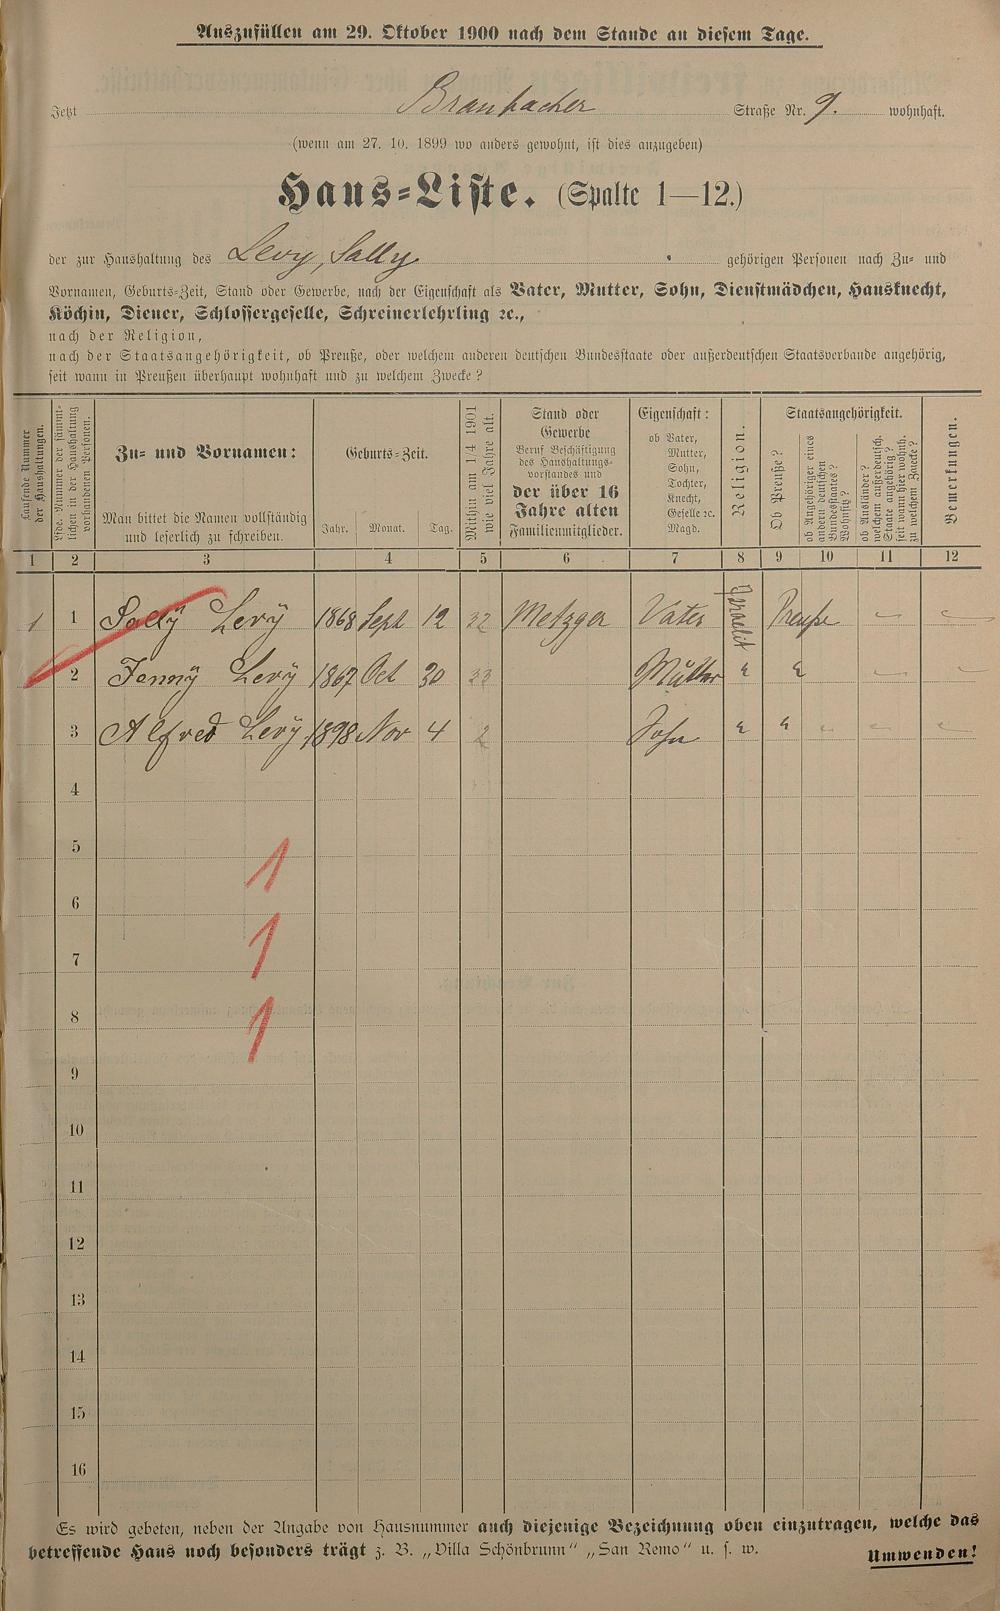 Auszufüllen am 29. Oktober 1900 nach dem Stande an diesem Tage.
Jetzt Braubacher Straße Nr. 9. wohnhaft.
(wenn am 27. 10. 1899 wo anders gewohnt, ist dies anzugeben)
Haus-Liste. (Spalte 1—12.)
der zur Haushaltung des Levy, Sally gehörigen Personen nach Zu- und
Vornamen, Geburts-Zeit, Stand oder Gewerbe, nach der Eigenschaft als Vater, Mutter, Sohn, Dienstmädchen, Hausknecht,
Köchin, Diener, Schlossergeselle, Schreinerlehrling ꝛc.,
nach der Religion,
nach der Staatsangehörigkeit, ob Preuße, oder welchem anderen deutschen Bundesstaate oder außerdeutschen Staatsverbande angehörig,
seit wann in Preußen überhaupt wohnhaft und zu welchem Zwecke?
Laufende Nummer der Haushaltungen.
Lfde. Nummer der sämmtlichen in der Haushaltung vorhandenen Personen.
Zu- und Vornamen:
Man bittet die Namen vollständig
und leserlich zu schreiben.
Geburts-Zeit.
Jahr. Monat. Tag.
Mithin am 1/4 1901
wie viel Jahre alt.
Stand oder
Gewerbe
Beruf Beschäftigung
des Haushaltungs-
vorstandes und
der über 16
Jahre alten
Familienmitglieder.
Eigenschaft:
ob Vater,
Mutter,
Sohn,
Tochter,
Knecht,
Geselle ꝛc.
Magd.
Religion.
Staatsangehörigkeit.
Ob Preuße?
ob Angehöriger eines
andern deutschen
Bundesstaates?
Wohnsitz?
ob Ausländer?
welchem außerdeutsch.
Staate angehörig?
seit wann hier wohnh.
zu welchem Zwecke?
Bemerkungen.
1 2 3 4 5 6 7 8 9 10 11 12
1 1 Sally Levÿ 1868 Sept 12 32 Metzger Vater Israelit Preuße
2 Jenny Levÿ 1867 Oct 30 33 Mutter " "
3 Alfred Levÿ 1898 Nov 4 2 Sohn " "
4
5
1
6
7
1
8
1
9
10
11
12
13
14
15
16
Es wird gebeten, neben der Angabe von Hausnummer auch diejenige Bezeichnung oben einzutragen, welche das
betreffende Haus noch besonders trägt z. B. „Villa Schönbrunn" „San Remo" u. s. w.
Umwenden!